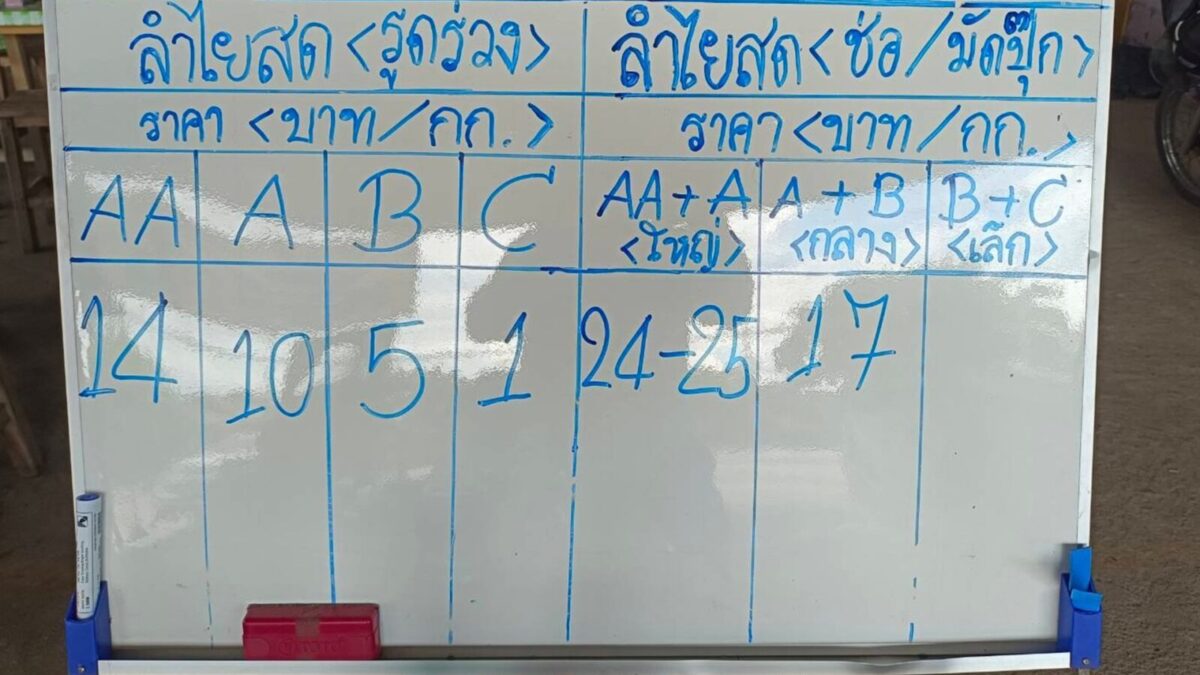 ลำไยสด <รูดร่วง> ลำไยสด < ช่อ / มัดปุ๊ก >
ราคา <บาท/กก.> ราคา <บาท/กก.>
AA A B C AA+A A+B B+C
<ใหญ่> <กลาง> <เล็ก>
14 10 5 1 24-25 17